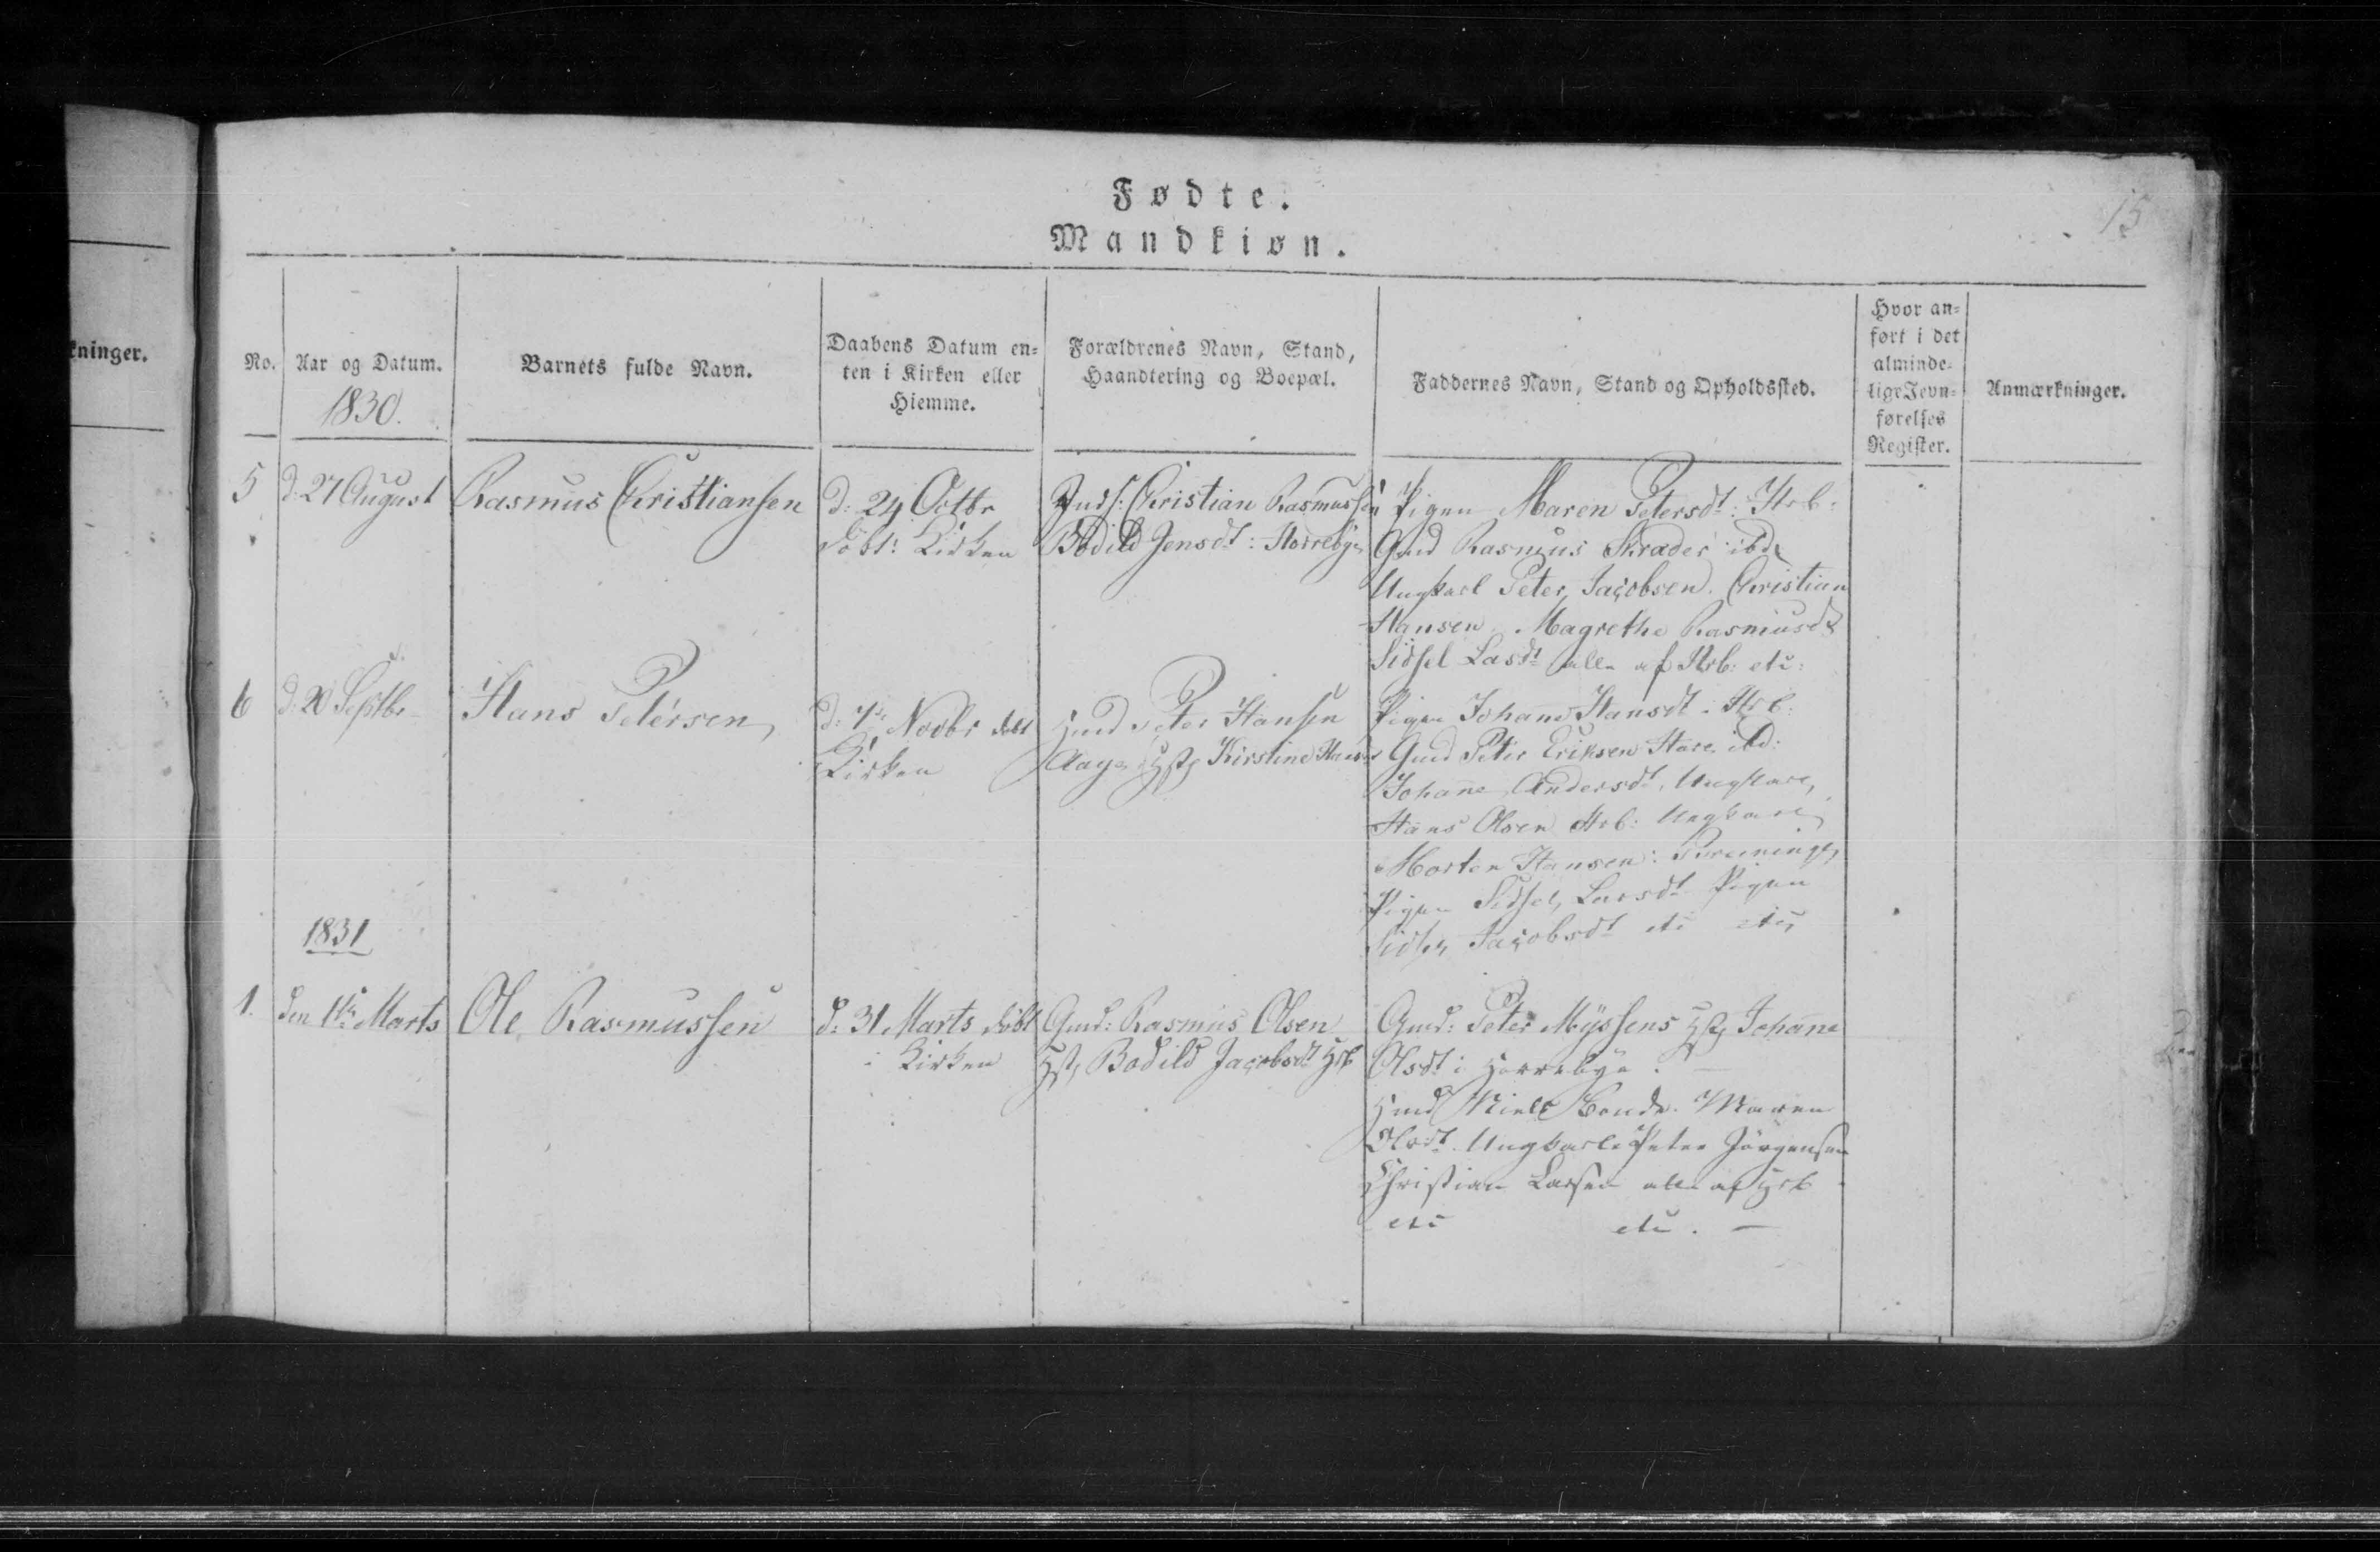 Fødte.
Mandkiøn.
15
kninger.
No.
Aar og Datum.
1830.
Barnets fulde Navn.
Daabens Datum en-
ten i Kirken eller
Hiemme.
Forældrenes Navn, Stand,
Haandtering og Boepæl.
Faddernes Navn, Stand og Opholdssted.
Hvor an-
ført i det
alminde-
lige Jevn-
førelses
Register.
Anmærkninger.
5
d: 27 August
Rasmus Christiansen
d: 24 Octbr
döbt: Kirken
Inds: Christian Rasmussen
Bodild Jensdt: Horrebye
Pigen Maren Petersdt: Hrb:
Gmd Rasmus Skræder ibd
Ungkarl Peter Jacobsen. Christian
Hansen. Magrethe Rasmusd
Sidsel Lasdt alle af Hrb: etc:
6
d: 20 Septbr
Hans Petersen
Novbr döbt
Kirken
Hmd Peter Hansen
Kirstine
Pigen Johane Hansdt: Hrb:
Gmd Peter Eriksen Hare ibd:
Johane Andersdt. Ungkarl,
Hans Olsen Hrb: Ungkarl
Morten Hansen:
Pigen Sidsel Larsdt Pigen
Sidsel Jacobsdt etc etc
1831
1.
den 1te Marts
Ole Rasmussen
d: 31 Marts döbt
i Kirken
Gmd: Rasmus Olsen
Hst Bodild Jacobsdt Hrb
Gmd: Peter Myssens Hst Johane
Olsdt i Horrebye. —
Hmd Niels Bonde. Maren
Olsdt Ungkarle Peter Jörgensen
Christian Larsen alle af Hrb
etc etc. —